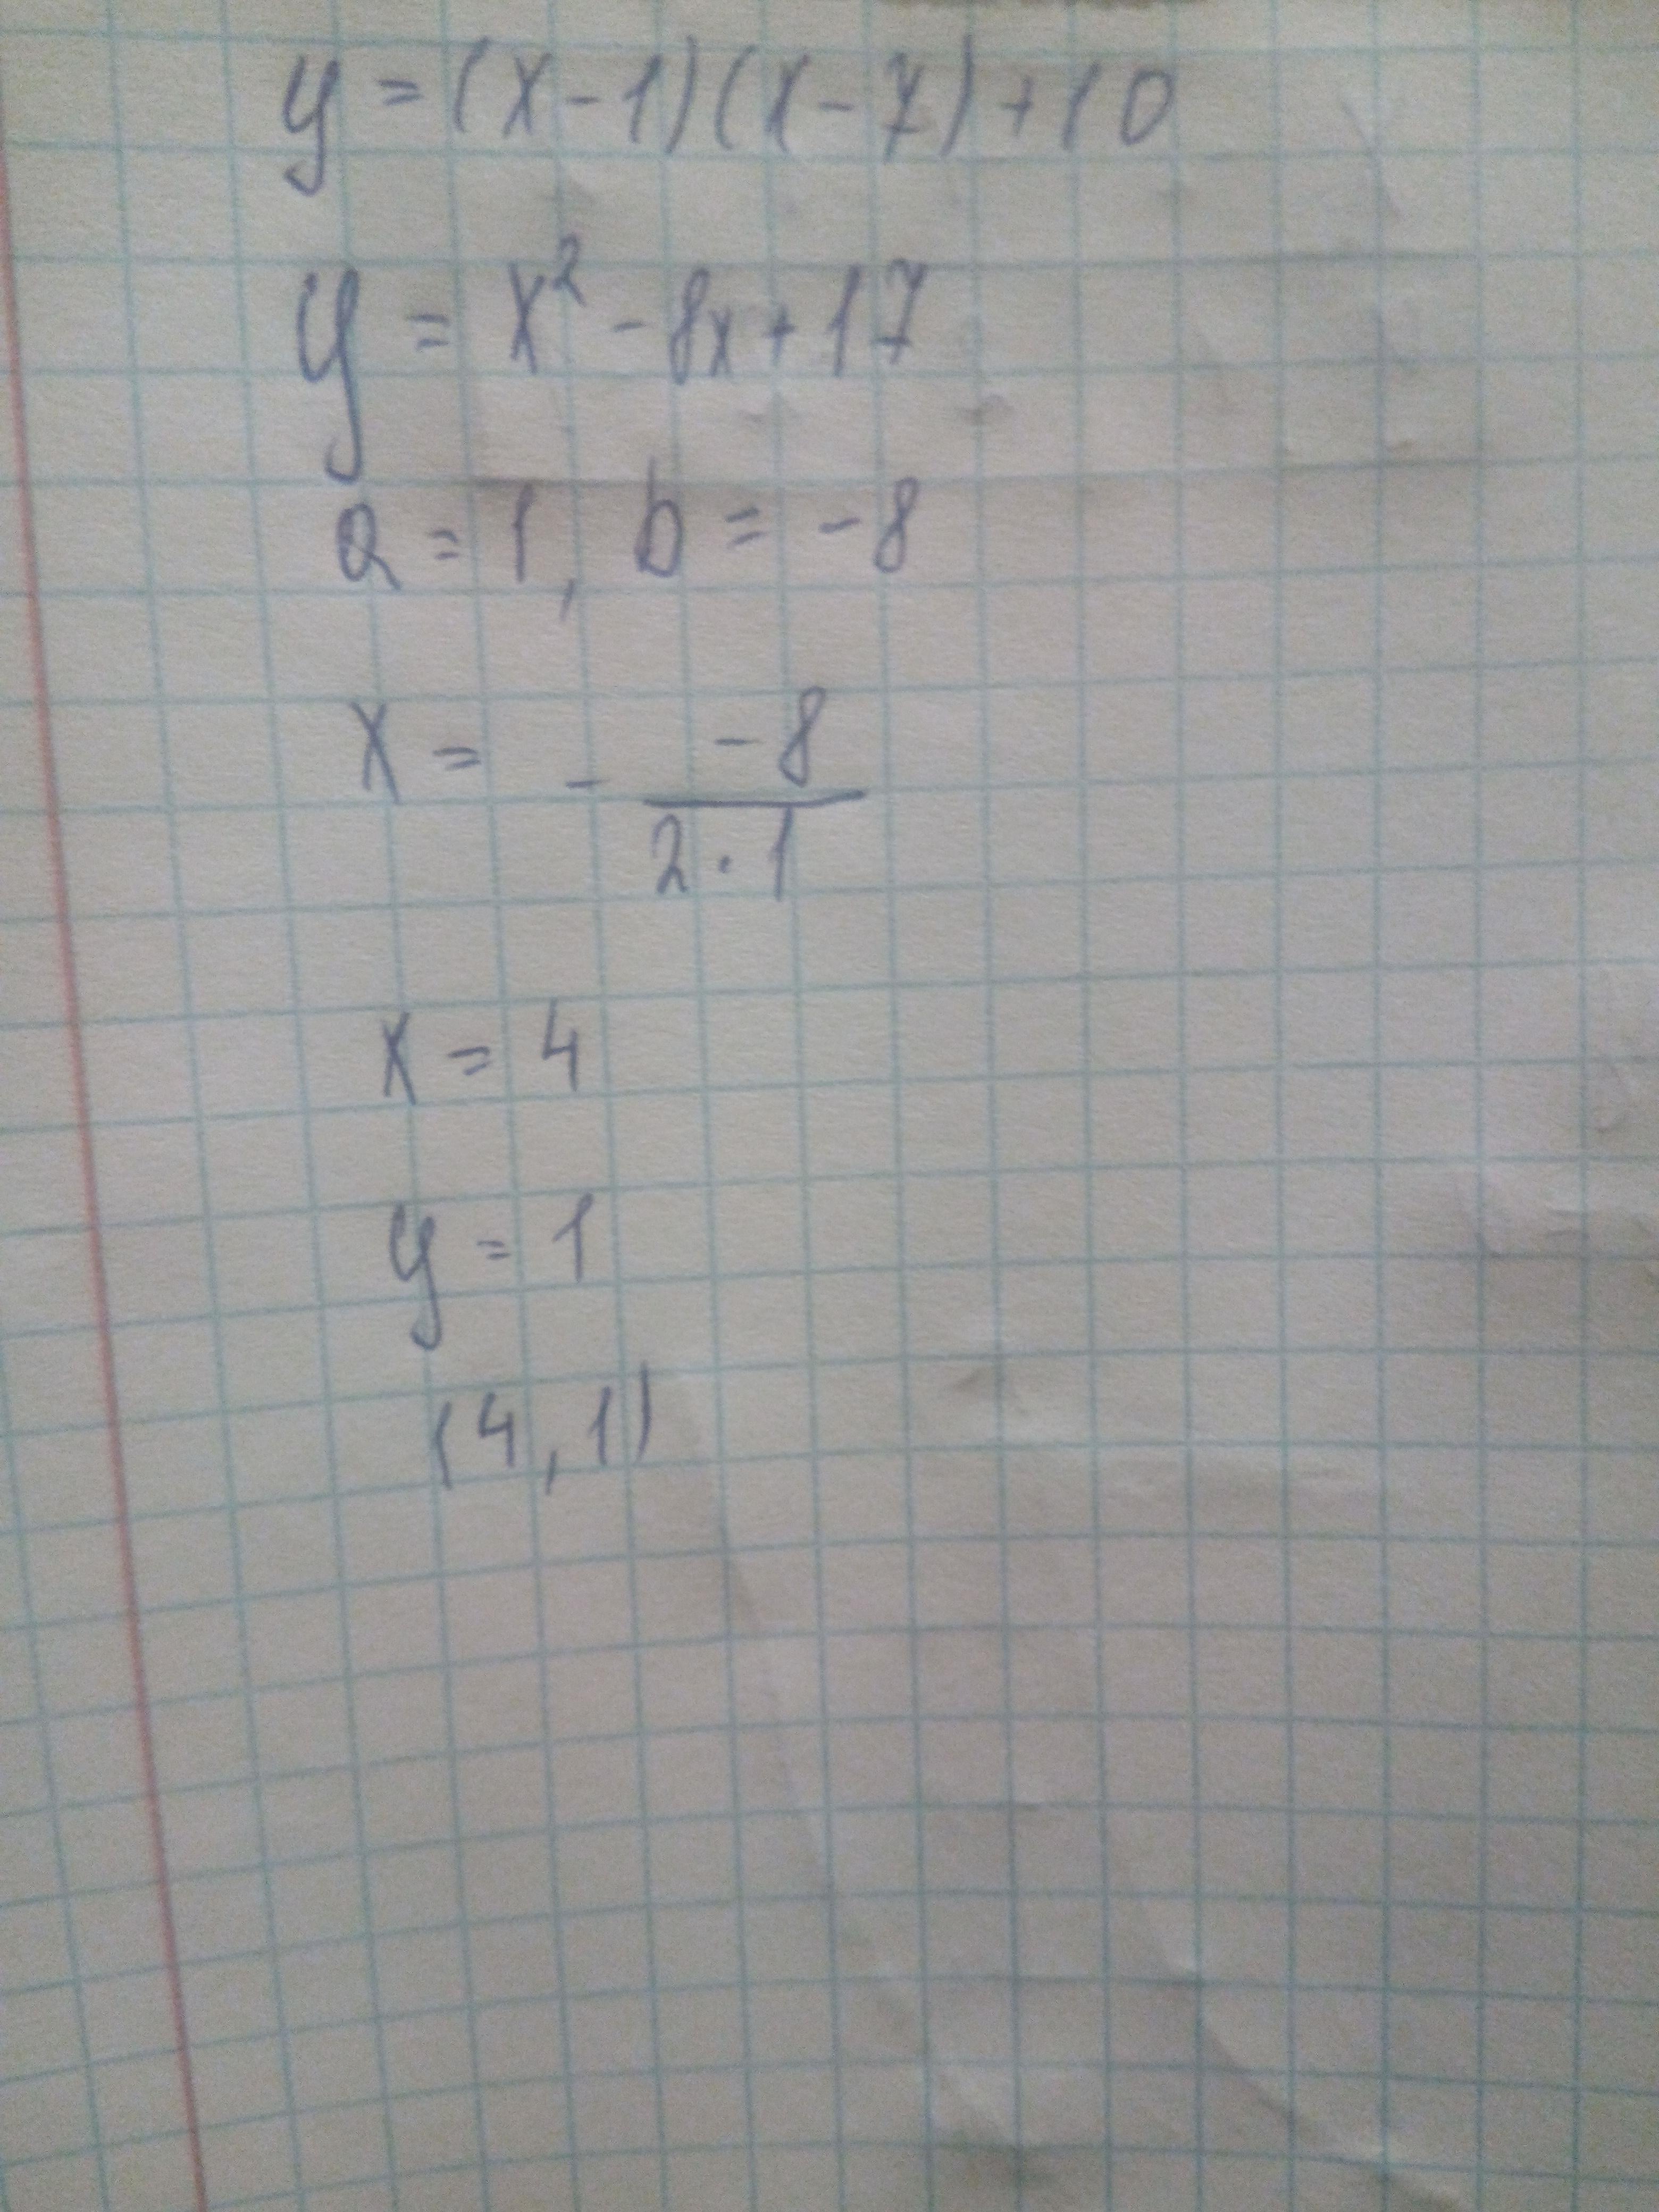 y = (x - 1)(x - 7) + 10
y = x² - 8x + 17
a = 1, b = -8
x = - -8 / 2 · 1
x = 4
y = 1
(4, 1)